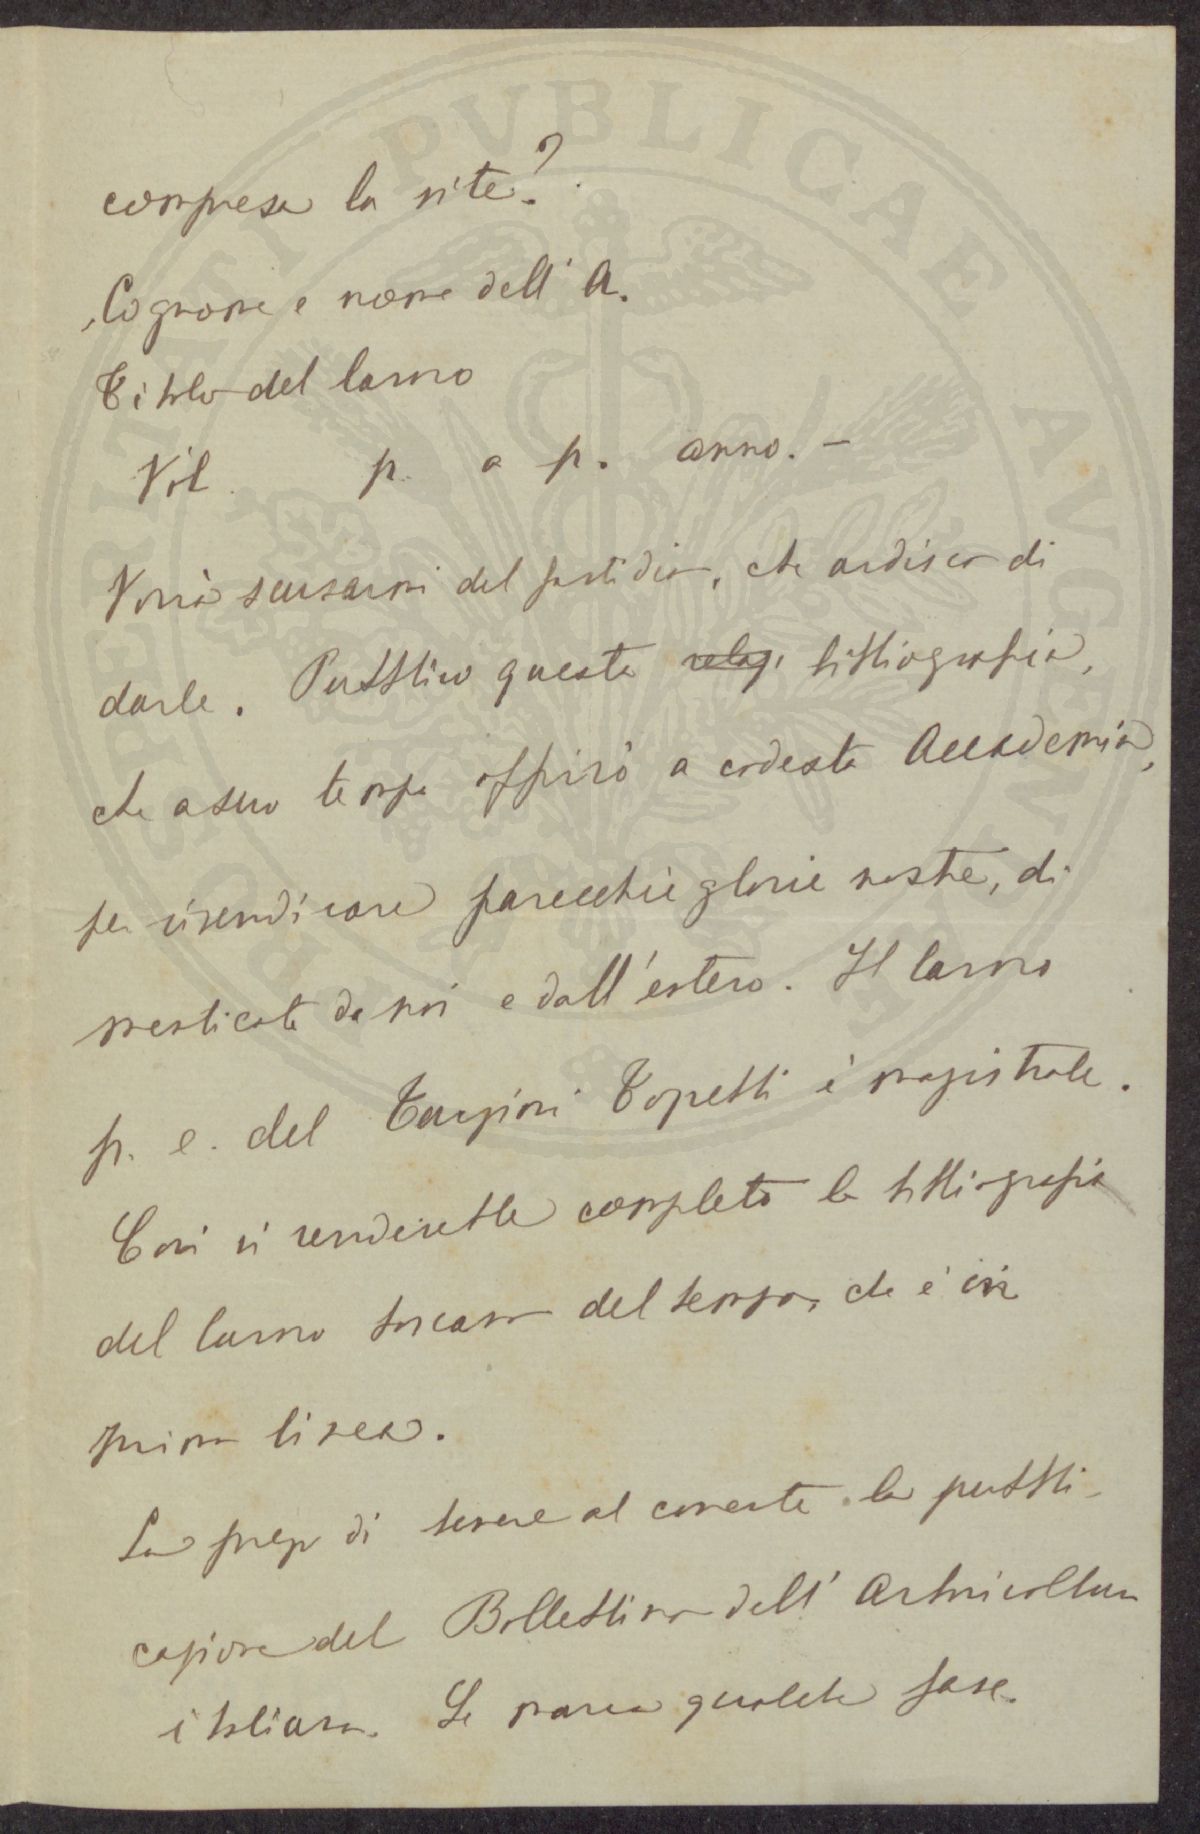 compresa la vite?
Cognome e nome dell' A.
Titolo del lavoro
Vol. p. a p. anno. –
Vorrà scusarmi del fastidio, che ardisco di
darle. Pubblico questa bibliografia,
che a suo tempo offrirò a codesta Accademia,
per rivendicare parecchie glorie nostre, di
menticate da noi e dall'estero. Il lavoro
p. e. del Targioni Tozzetti è magistrale.
Così si renderebbe completa la bibliografia
del lavoro toscano del tempo, che è in
prima linea.
La prego di tenere al corrente la pubbli-
cazione del Bollettino dell' Arboricoltura
italiana. Le manca qualche fasc.
PROSPERITATI PVBLICAE AVGENDAE